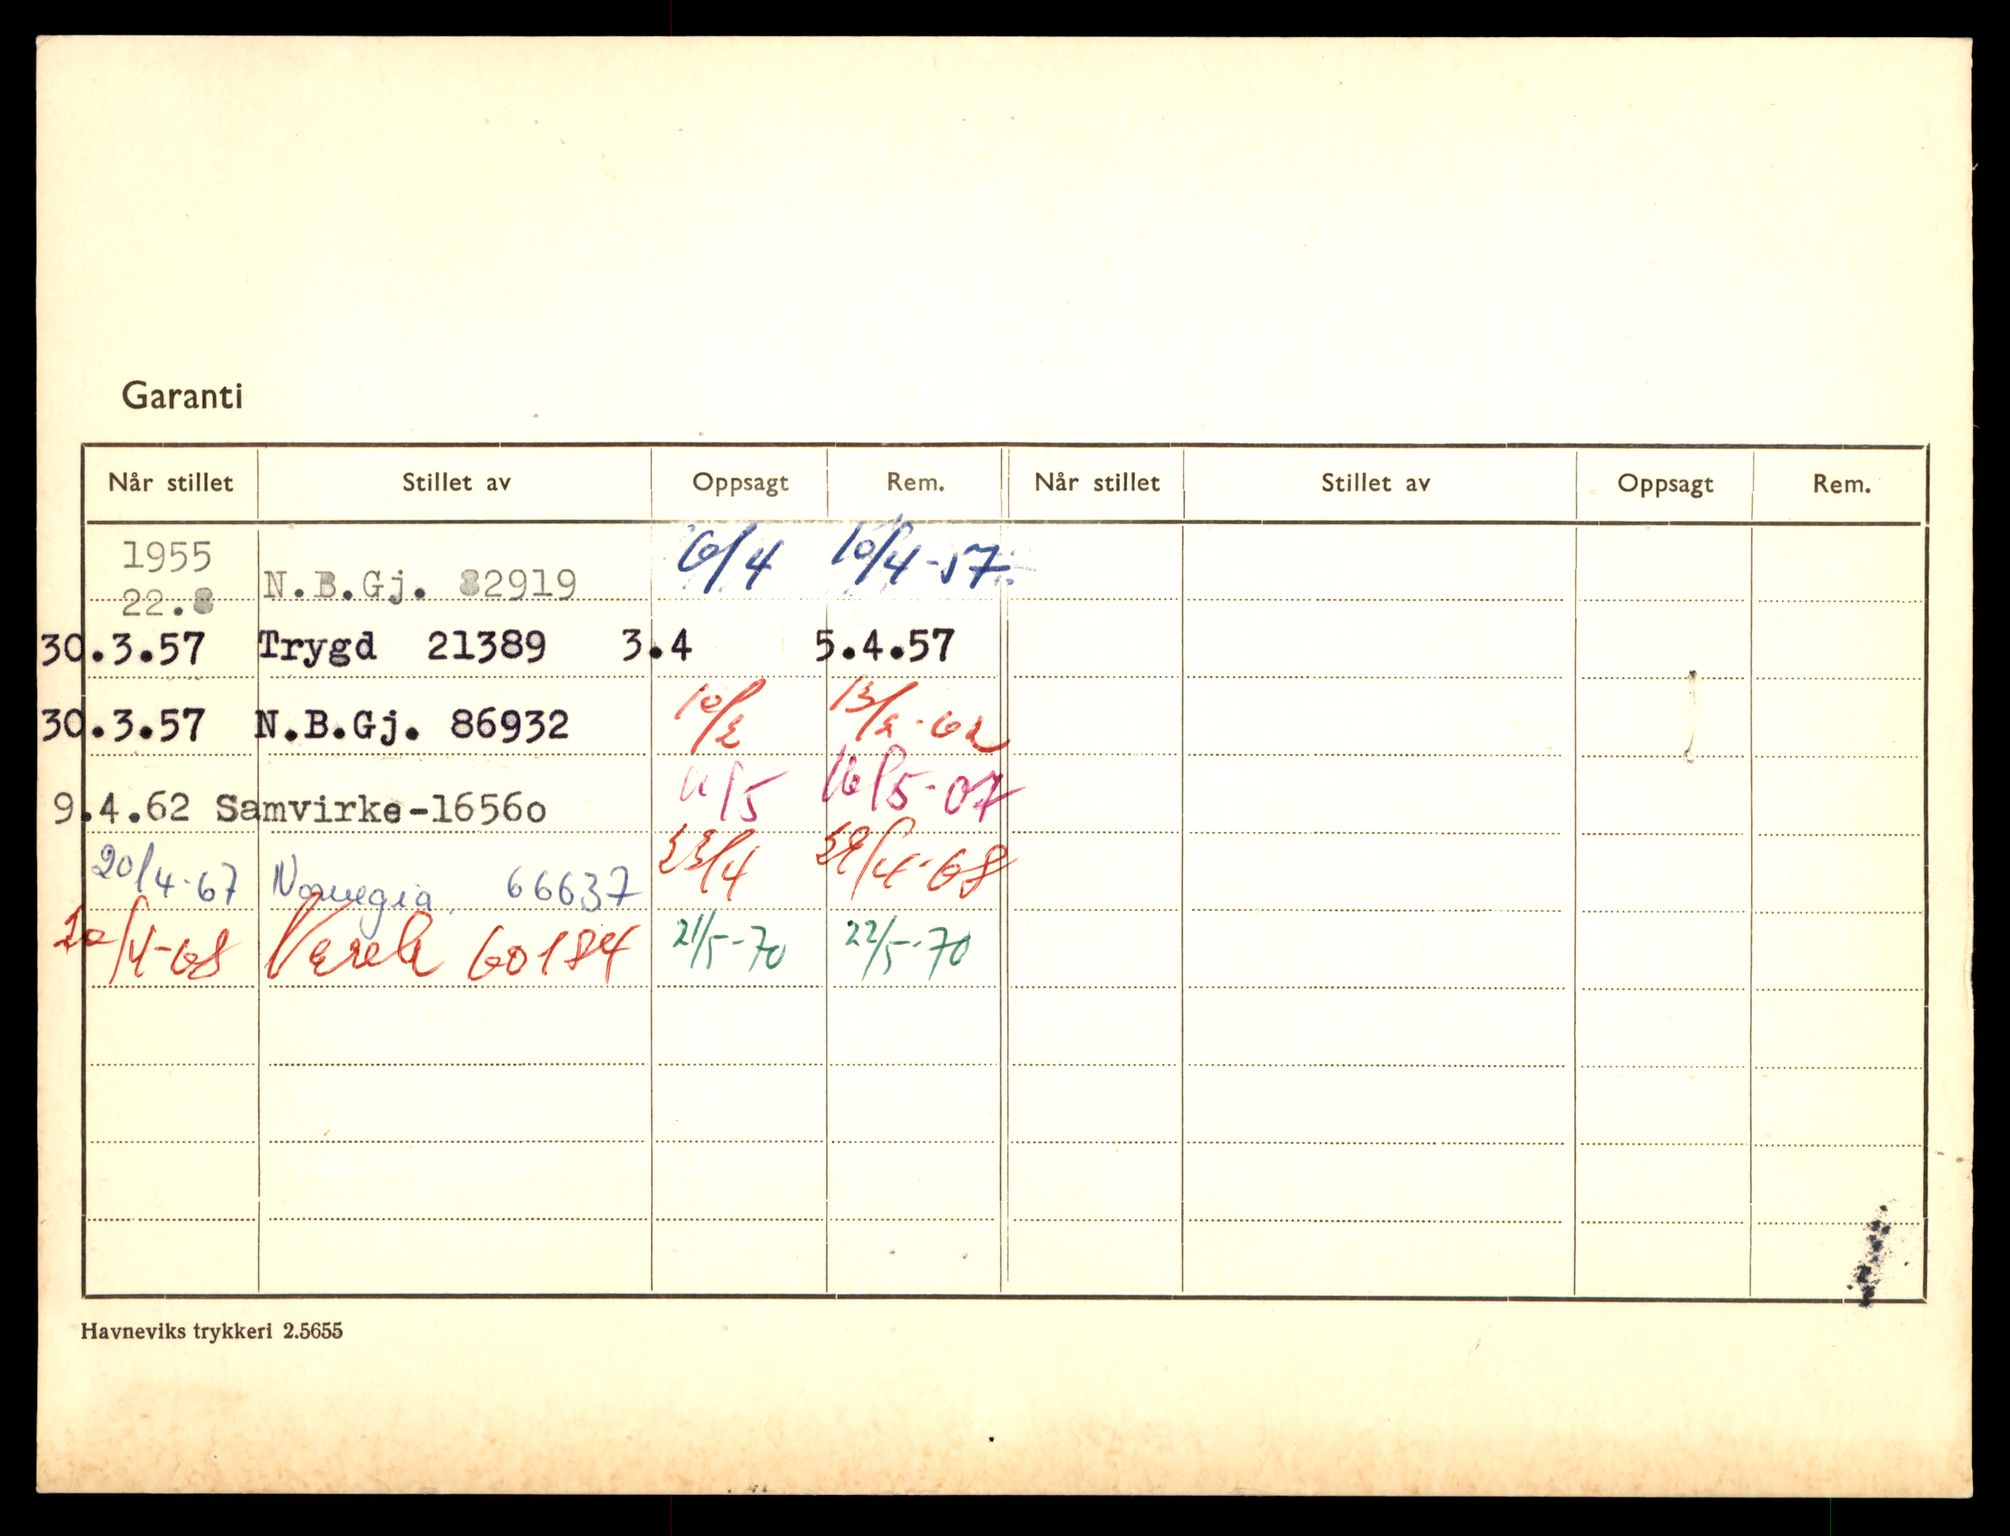 Garanti
Når stillet Stillet av Oppsagt Rem. Når stillet Stillet av Oppsagt Rem.
1955
22.8 N.B.Gj. 82919 6/4 10/4-57
30.3.57 Trygd 21389 3.4 5.4.57
30.3.57 N.B.Gj. 86932 10/2 13/2-62
9.4.62 Samvirke-1656o 11/5 16/5-67
20/4-67 Norvegia 66637 23/4 29/4-68
20/4-68 60184 21/5-70 22/5-70
Havneviks trykkeri 2.5655